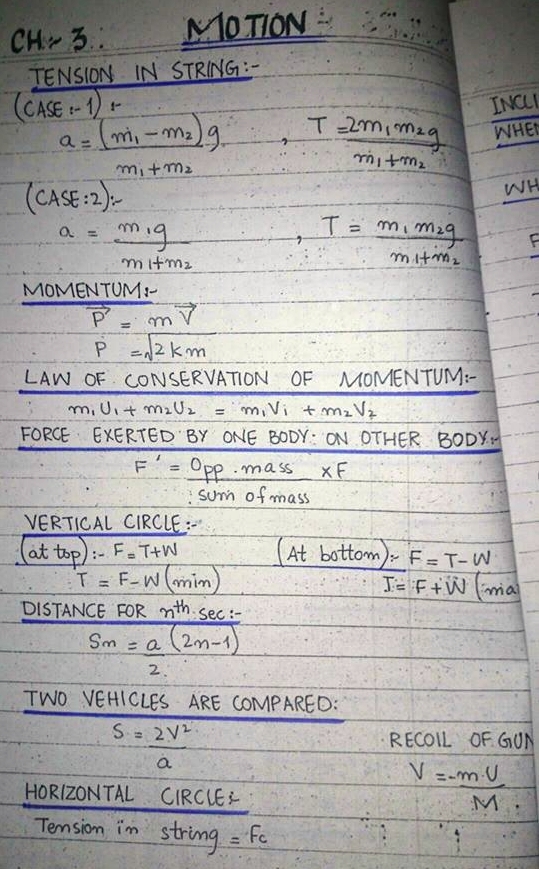 CH:- 3.. MOTION :-
TENSION IN STRING:-
(CASE :- 1) :-
a = (m₁ - m₂)g / m₁ + m₂ , T = 2m₁m₂g / m₁ + m₂
(CASE :2):-
a = m₁g / m₁+m₂ , T = m₁ m₂g / m₁+m₂
MOMENTUM:-
P⃗ = m V⃗
P = √2km
LAW OF CONSERVATION OF MOMENTUM:-
m₁U₁ + m₂U₂ = m₁V₁ + m₂V₂
FORCE EXERTED BY ONE BODY: ON OTHER BODY:-
F' = Opp. mass / sum of mass x F
VERTICAL CIRCLE:-
(at top):- F = T+W (At bottom):- F = T-W
T = F-W (min) T = F+W (ma
DISTANCE FOR nth sec:-
Sn = a/2 (2n-1)
TWO VEHICLES ARE COMPARED:
S = 2V² / a
RECOIL OF GUN
V = -mU / M
HORIZONTAL CIRCLE:-
Tension in string = Fc
INCLI
WHEN
WH
F